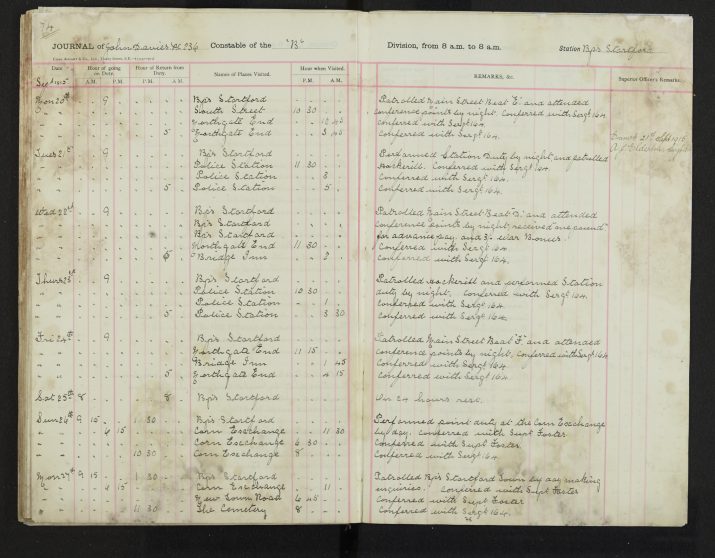 74
JOURNAL of John Davies PC 236 Constable of the "B" Division, from 8 a.m. to 8 a.m. Station Bp's Stortford
Date Hour of going on Duty. Hour of Return from Duty. Names of Places Visited. Hour when Visited. REMARKS, &c. Superior Officer's Remarks.
A.M. P.M. P.M. A.M. P.M. A.M.
Mon 20th 9 Bp's Stortford Patrolled Main Street Beat "E" and attended
South Street 10 30 conference points by night. Conferred with Sergt 164
Northgate End 12 45 Conferred with Sergt 164
5 Northgate End 3 45 Conferred with Sergt 164.
Tues 21st 9 Bp's Stortford Performed Station Duty by night and patrolled
Police Station 11 30 Hockerill. Conferred with Sergt 164
Police Station 3 Conferred with Sergt 164.
5 Police Station 5 Conferred with Sergt 164.
Wed 22nd 9 Bp's Stortford Patrolled Main Street Beat "D" and attended
Bp's Stortford conference points by night, received one
Bp's Stortford for advance pay, and War Bonus.
Northgate End 11 30 Conferred with Sergt 164
5 Bridge Inn 2 Conferred with Sergt 164.
Thurs 23rd 9 Bp's Stortford Patrolled Hockerill and performed Station
Police Station 10 30 duty by night. Conferred with Sergt 164
Police Station 1 Conferred with Sergt 164
5 Police Station 3 30 Conferred with Sergt 164.
Fri 24th 9 Bp's Stortford Patrolled Main Street Beat "F" and attended
Northgate End 11 15 conference points by night. Conferred with Sergt 164
Bridge Inn 1 45 Conferred with Sergt 164
5 Northgate End 4 15 Conferred with Sergt 164
Sat 25th 8 8 Bp's Stortford On 24 hours rest.
Sun 26th 9 15 1 30 Bp's Stortford Performed point duty at the Corn Exchange
6 15 Corn Exchange 11 30 by day. Conferred with Supt Foster
Corn Exchange 6 30 Conferred with Supt Foster
10 30 Corn Exchange 8 Conferred with Sergt 164.
Mon 27th 9 15 1 30 Bp's Stortford Patrolled Bp's Stortford Town by day making
6 15 Corn Exchange 11 enquiries. Conferred with Supt Foster
New Town Road 6 45 Conferred with Supt Foster
11 30 The Cemetery 8 Conferred with Sergt 164.